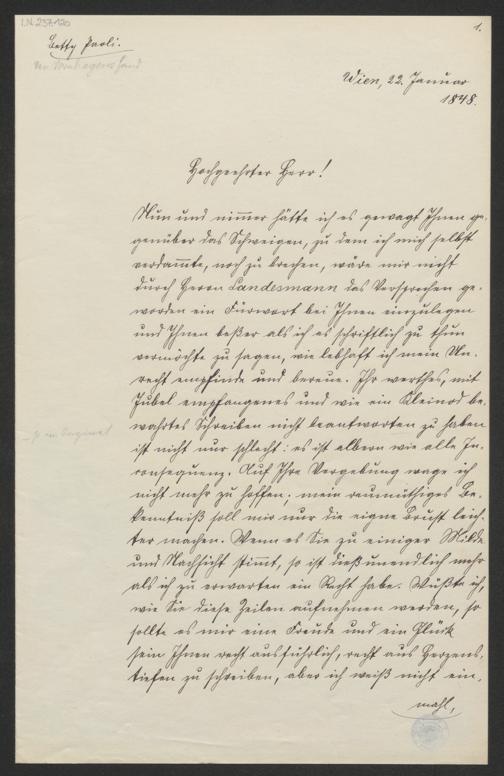 I.N. 237.120
1.
Betty Paoli.
Wien, 22. Januar
1848.
Hochgeehrter Herr!
Nun und nimmer hätte ich es gewagt Ihnen ge-
genüber das Schweigen, zu dem ich mich selbst
verdammte, noch zu brechen, wäre mir nicht
durch Herrn Landesmann das Versprechen ge-
worden ein Fürwort bei Ihnen einzulegen
und Ihnen beßer als ich es schriftlich zu thun
vermöchte zu sagen, wie lebhaft ich mein Un-
recht empfinde und bereue. Ihr werthes, mit
Jubel empfangenes und wie ein Kleinod be-
wahrtes Schreiben nicht beantworten zu haben
ist nicht nur schlecht: es ist albern wie alle In-
consequenz. Auf Ihre Vergebung wage ich
nicht mehr zu hoffen; mein reumüthiges Be-
kenntniß soll mir nur die eigne Brust leich-
ter machen. Wenn es Sie zu einiger Milde
und Nachsicht stimmt, so ist dieß unendlich mehr
als ich zu erwarten ein Recht habe. Wüßte ich,
wie Sie diese Zeilen aufnehmen werden, so
sollte es mir eine Freude und ein Glück
sein Ihnen recht ausführlich, recht aus Herzens-
tiefen zu schreiben, aber ich weiß nicht ein-
mahl,